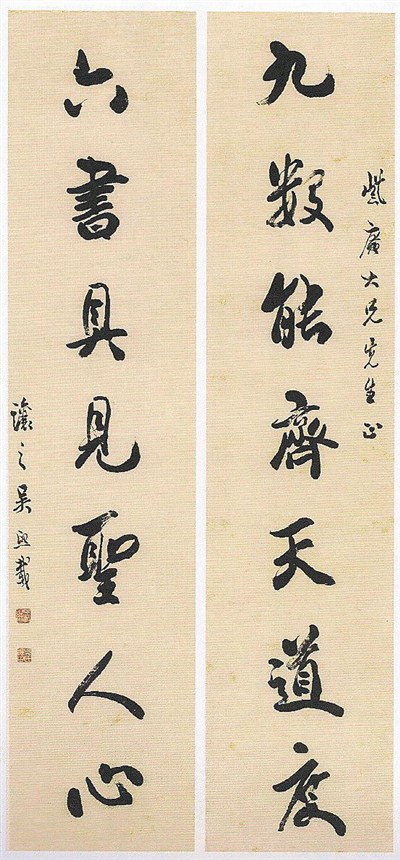 九數能齊天道度
六書具見聖人心
大兄先生正
讓之吳熙載